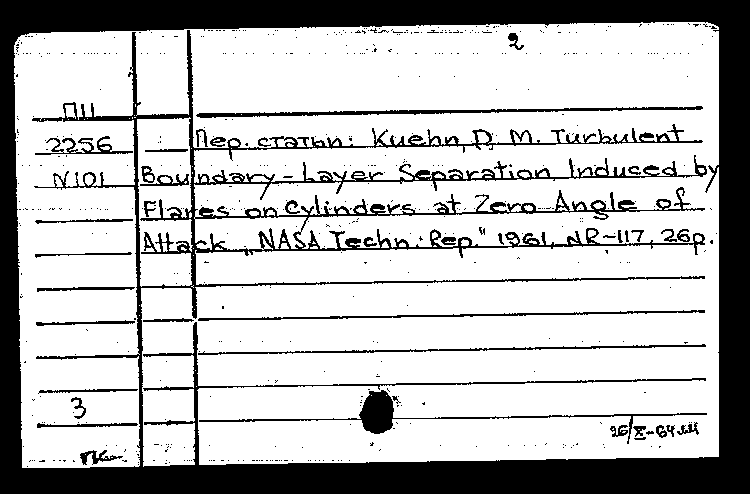 2
П11
2256 Пер. статьи: Kuehn, D. M. Turbulent
N101 Boundary-Layer Separation Induced by
Flares on Cylinders at Zero Angle of
Attack „NASA Techn. Rep." 1961, NR-117, 26p.
3
26/X-64